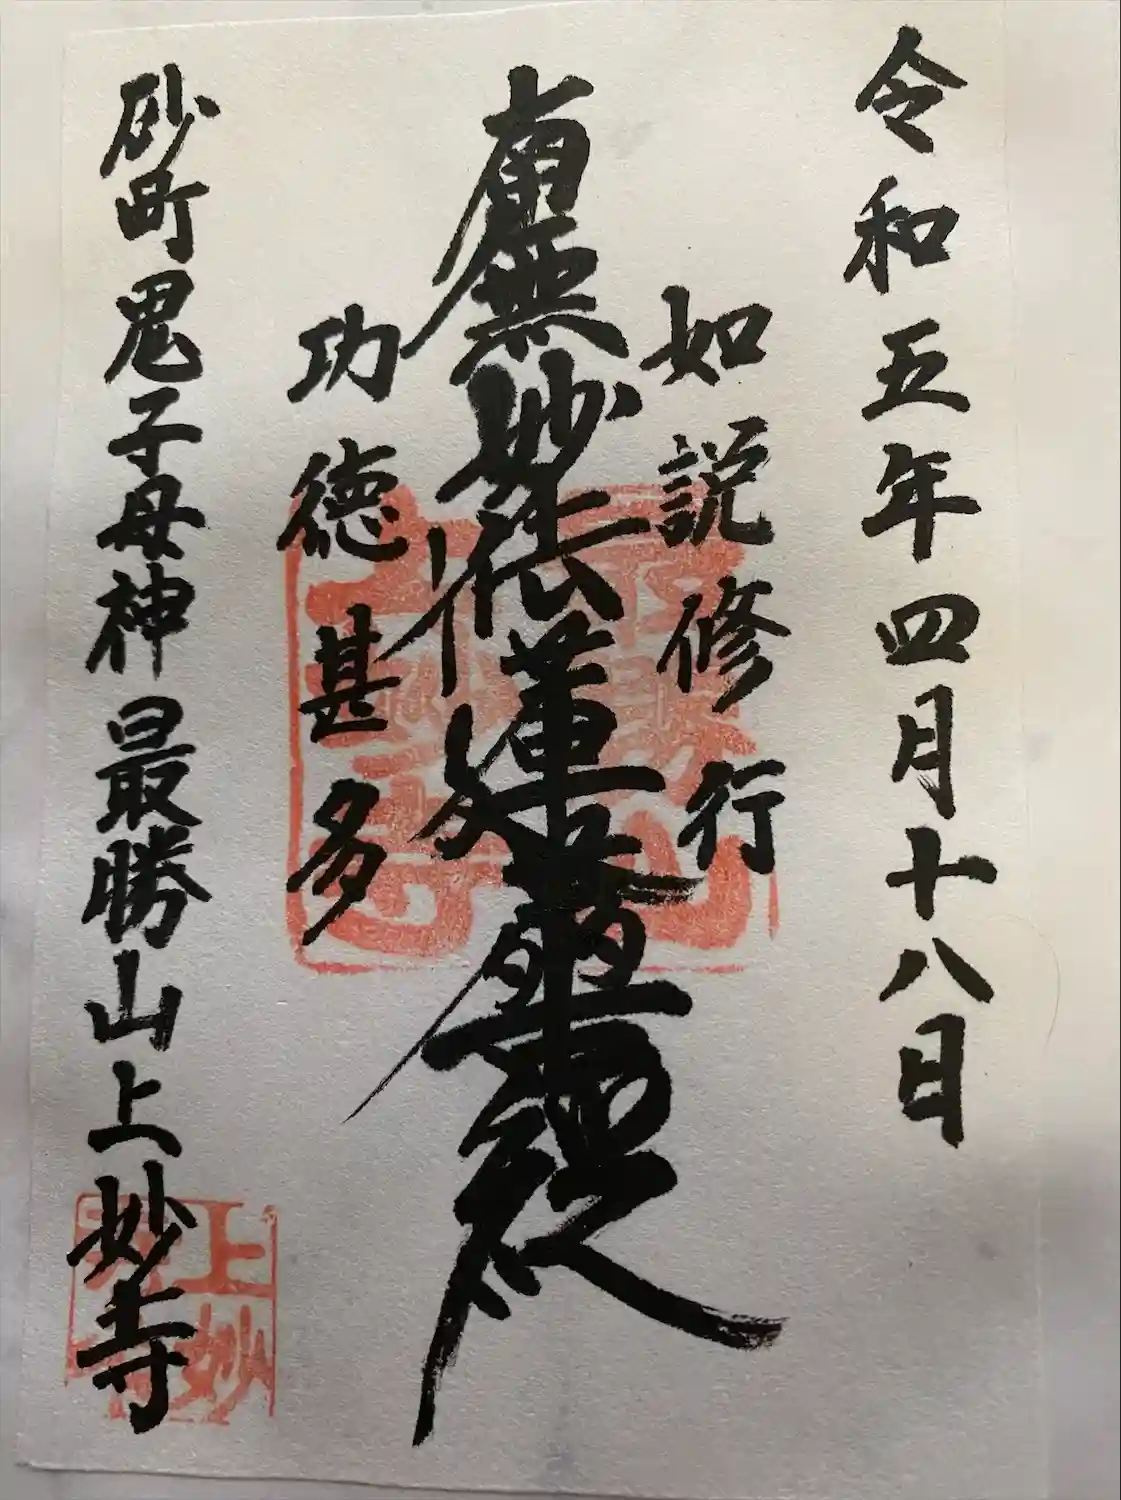 令和五年四月十八日
如説修行
南無妙法蓮華経
功徳甚多
砂町鬼子母神 最勝山上妙寺